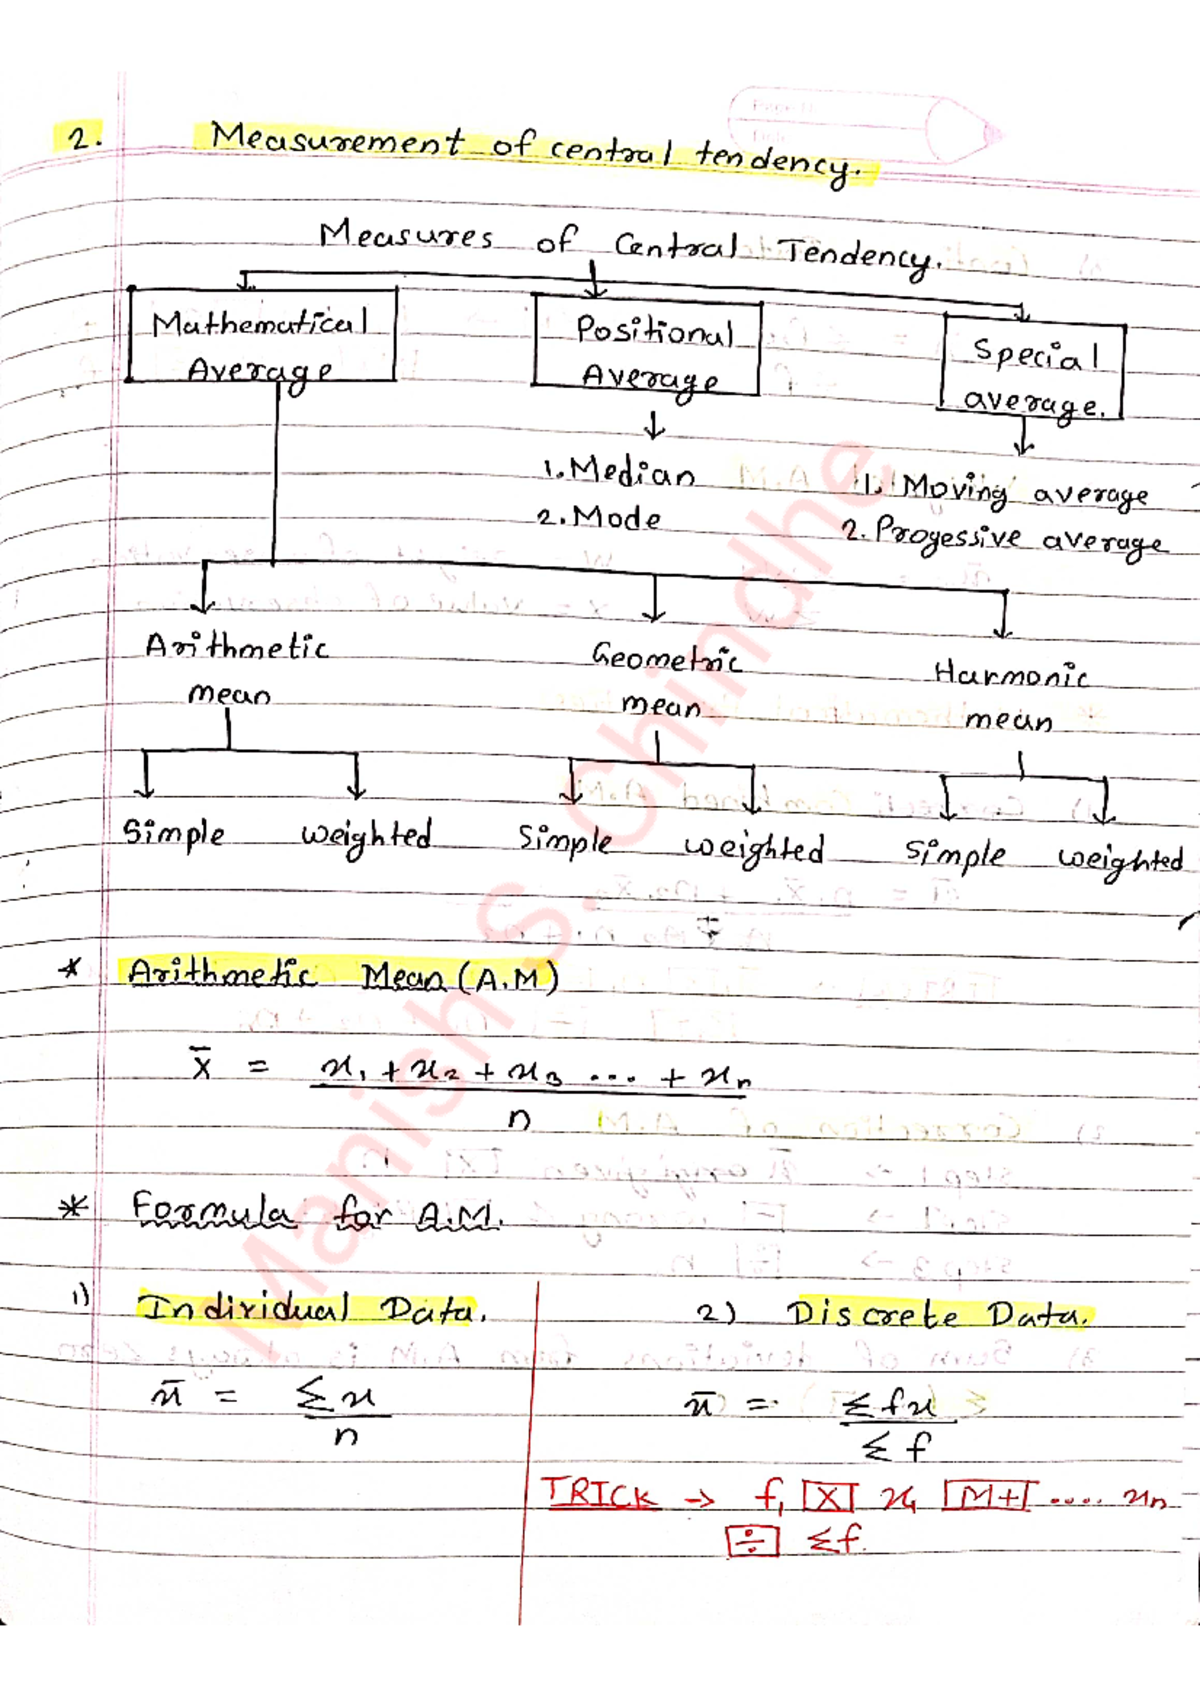 2. Measurement of central tendency.
Measures of Central Tendency.
Mathematical Average
Positional Average
Special average.
1. Median
2. Mode
1. Moving average
2. Progessive average
Arithmetic mean
Geometric mean
Harmonic mean
Simple weighted Simple weighted Simple weighted
* Arithmetic Mean (A.M)
X̄ = x₁ + x₂ + x₃ .... + xₙ
n
* Formula for A.M.
1) Individual Data.
x̄ = Σx
n
2) Discrete Data.
x̄ = Σfx
Σf
TRICK → f₁ [X] x₁ [M+] .... xₙ
[÷] Σf.
Manish S. Chindhe